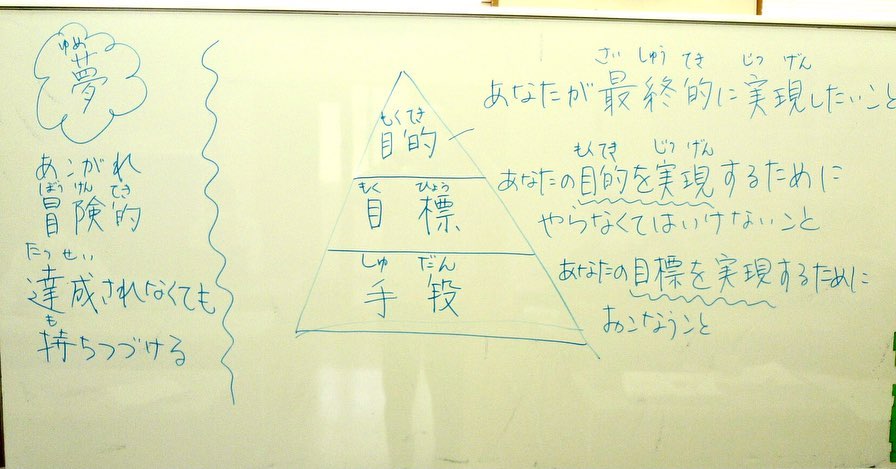 ゆめ
夢
あこがれ
ぼうけんてき
冒険的
たっせい
達成されなくても
も
持ちつづける
もくてき
目的
もく ひょう
目 標
しゅ だん
手 段
さい しゅう てき じつ げん
あなたが最終的に実現したいこと
もく てき じつ げん
あなたの目的を実現するために
やらなくてはいけないこと
あなたの目標を実現するために
おこなうこと